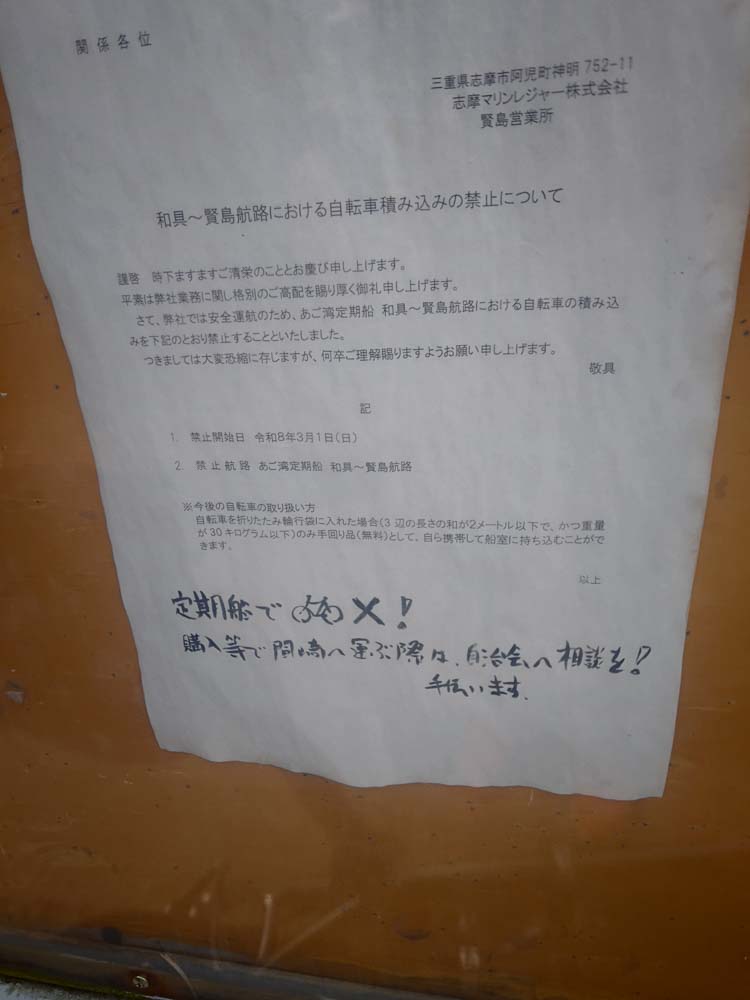 関係各位
三重県志摩市阿児町神明 752-11
志摩マリンレジャー株式会社
賢島営業所
和具～賢島航路における自転車積み込みの禁止について
謹啓　時下ますますご清栄のこととお慶び申し上げます。
平素は弊社業務に関し格別のご高配を賜り厚く御礼申し上げます。
さて、弊社では安全運航のため、あご湾定期船 和具～賢島航路における自転車の積み込
みを下記のとおり禁止することといたしました。
つきましては大変恐縮に存じますが、何卒ご理解賜りますようお願い申し上げます。
敬具
記
1.　禁止開始日　令和8年3月1日(日)
2.　禁 止 航 路　あご湾定期船　和具～賢島航路
※今後の自転車の取り扱い方
自転車を折りたたみ輪行袋に入れた場合(3 辺の長さの和が2メートル以下で、かつ重量
が 30 キログラム以下)のみ手回り品(無料)として、自ら携帯して船室に持ち込むことがで
きます。
以上
定期船で ×!
購入等で間崎へ運ぶ際は、自治会へ相談を!
手伝います.